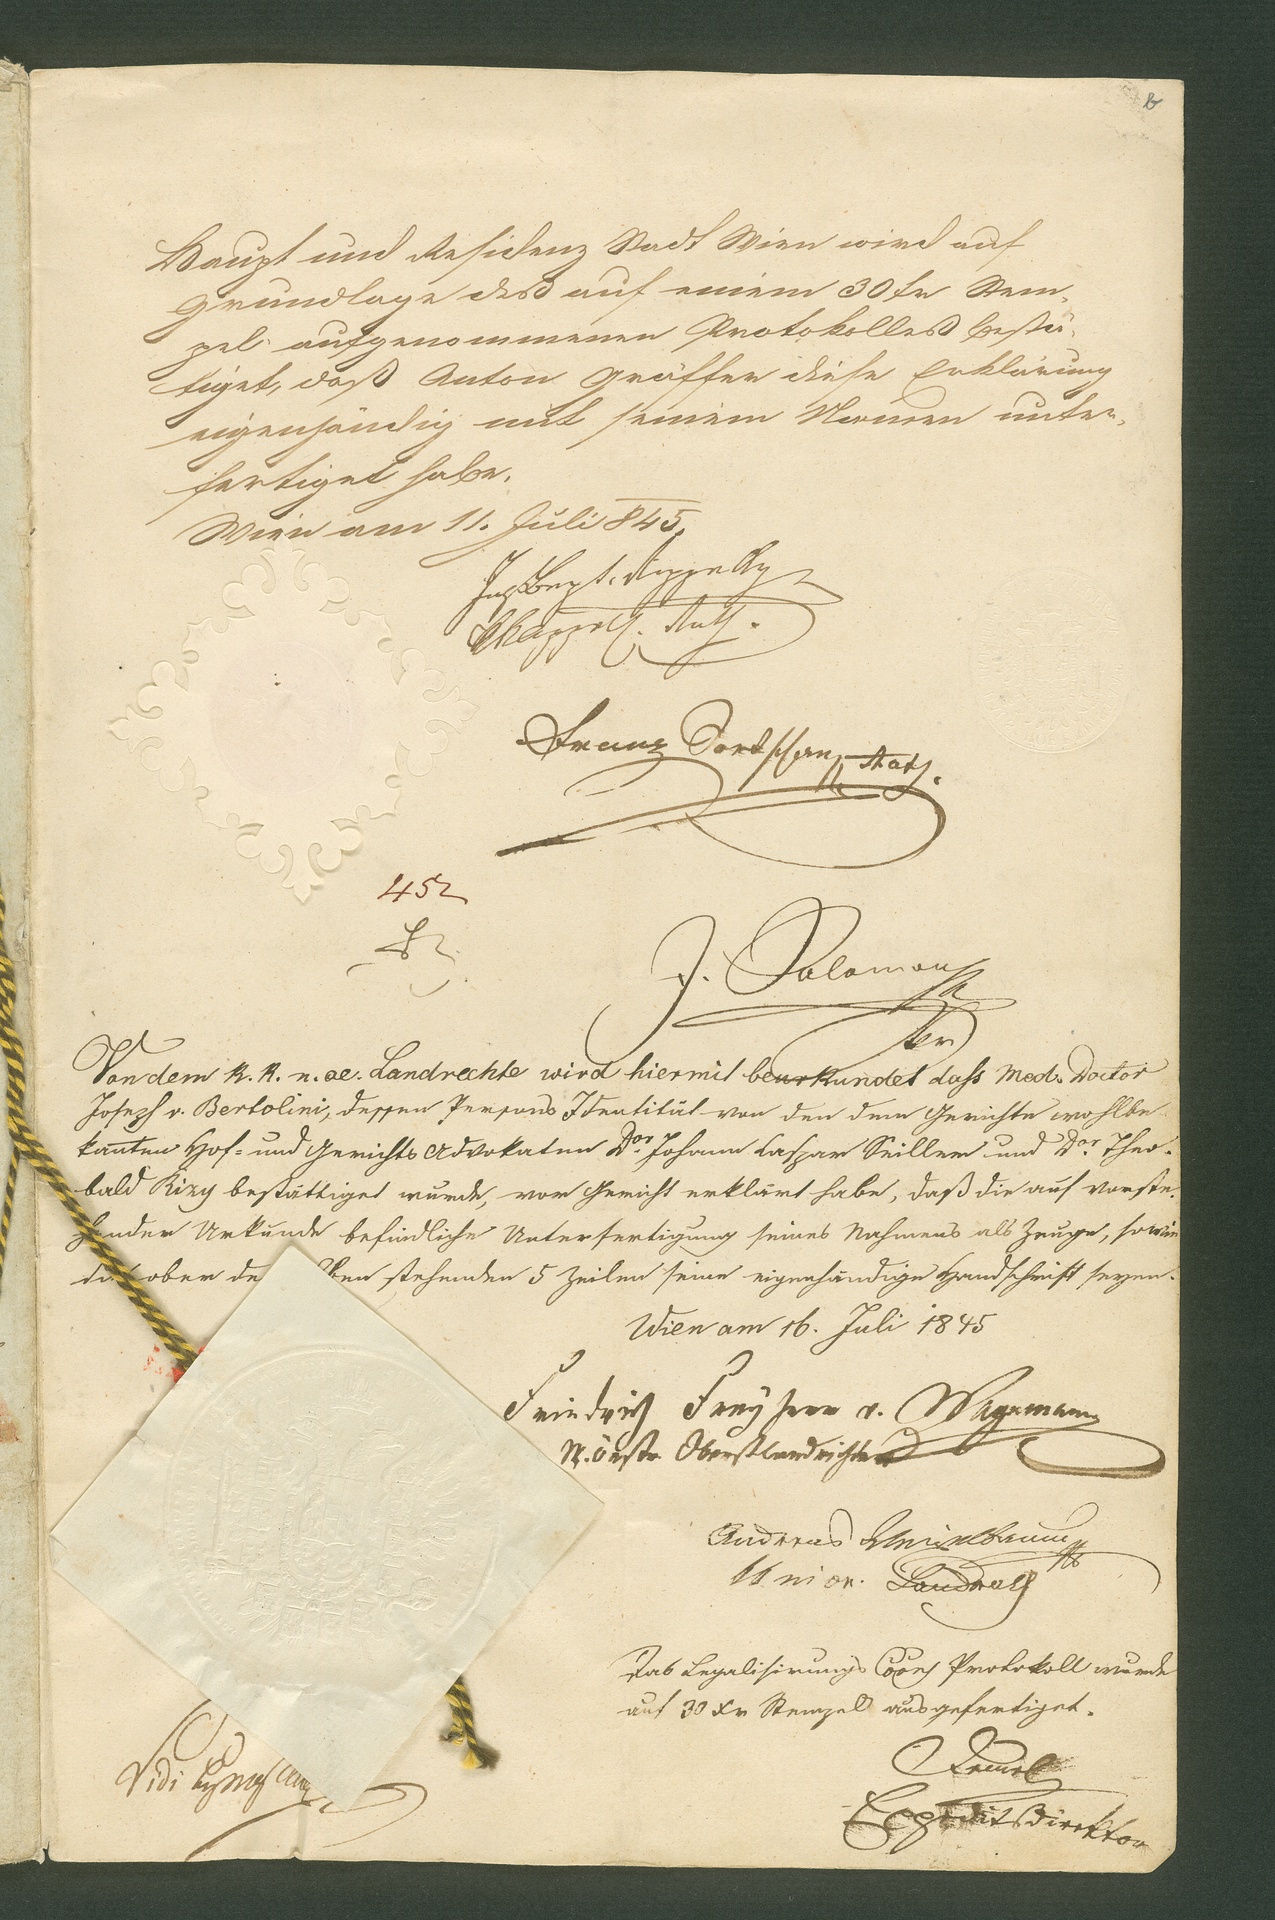 Haupt und Residenz Stadt Wien wird auf
Grundlage des auf einem 30 kr Stem-
pel aufgenommenen Protokolles bestä-
tiget, daß Anton Gräffer diese Erklärung
eigenhändig mit seinem Namen unter-
fertiget habe.
Wien am 11. Juli 845.
Rath.
Franz Rath.
452
J. Salomon
Von dem k. k. n. oe. Landrechte wird hiermit beurkundet dass Med. Doctor
Joseph v. Bertolini, dessen Persons Identität von den dem Gerichte wohlbe-
kannten Hof- und Gerichts Advokaten Dor. Johann Caspar Seiller und Dor. Theo-
bald Rizy bestättiget wurde, vor Gericht erklärt habe, daß die auf vorste-
hender Urkunde befindliche Unterfertigung seines Nahmens als Zeuge, sowie
ober stehenden 5 Zeilen seine eigenhändige Handschrift seyen.
Wien am 16. Juli 1845
Friedrich Freyherr v.
N. Oestr. Oberstlandrichter
Andreas
Landrath
Das Legalisirungs Protokoll wurde
auf 30 xr Stempel ausgefertiget.
Expeditsdirektor
Vidi